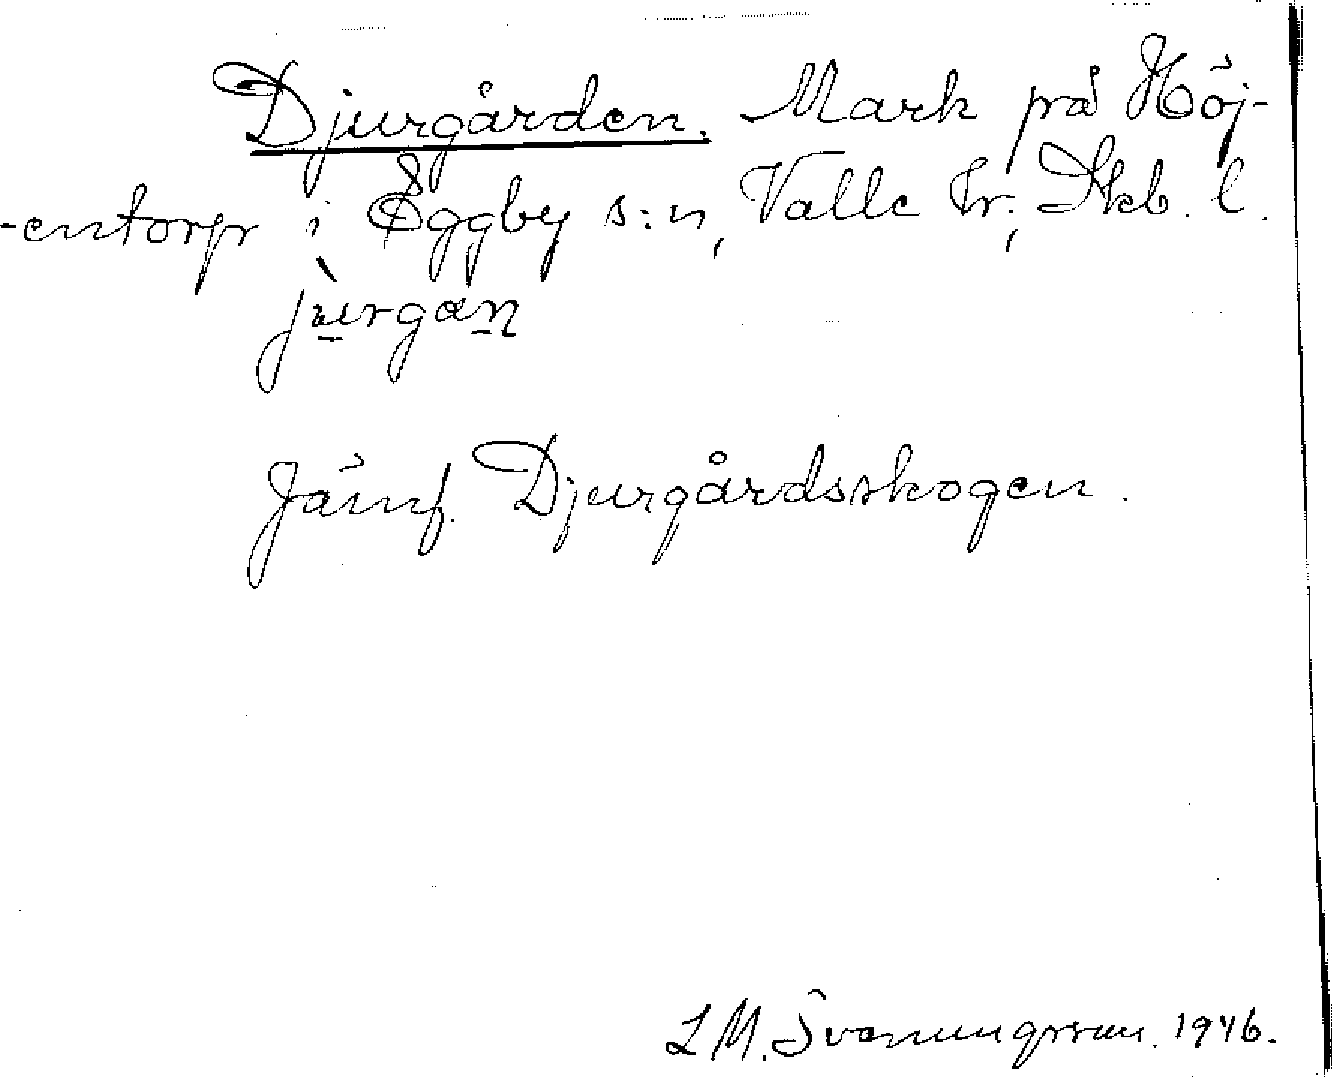 Djurgården. Mark på Höj-
-entorp i Eggby s:n, Valle hr; Skb. l.
jùrgan
Jämf. Djurgårdsskogen.
L M. Svanungsson. 1946.